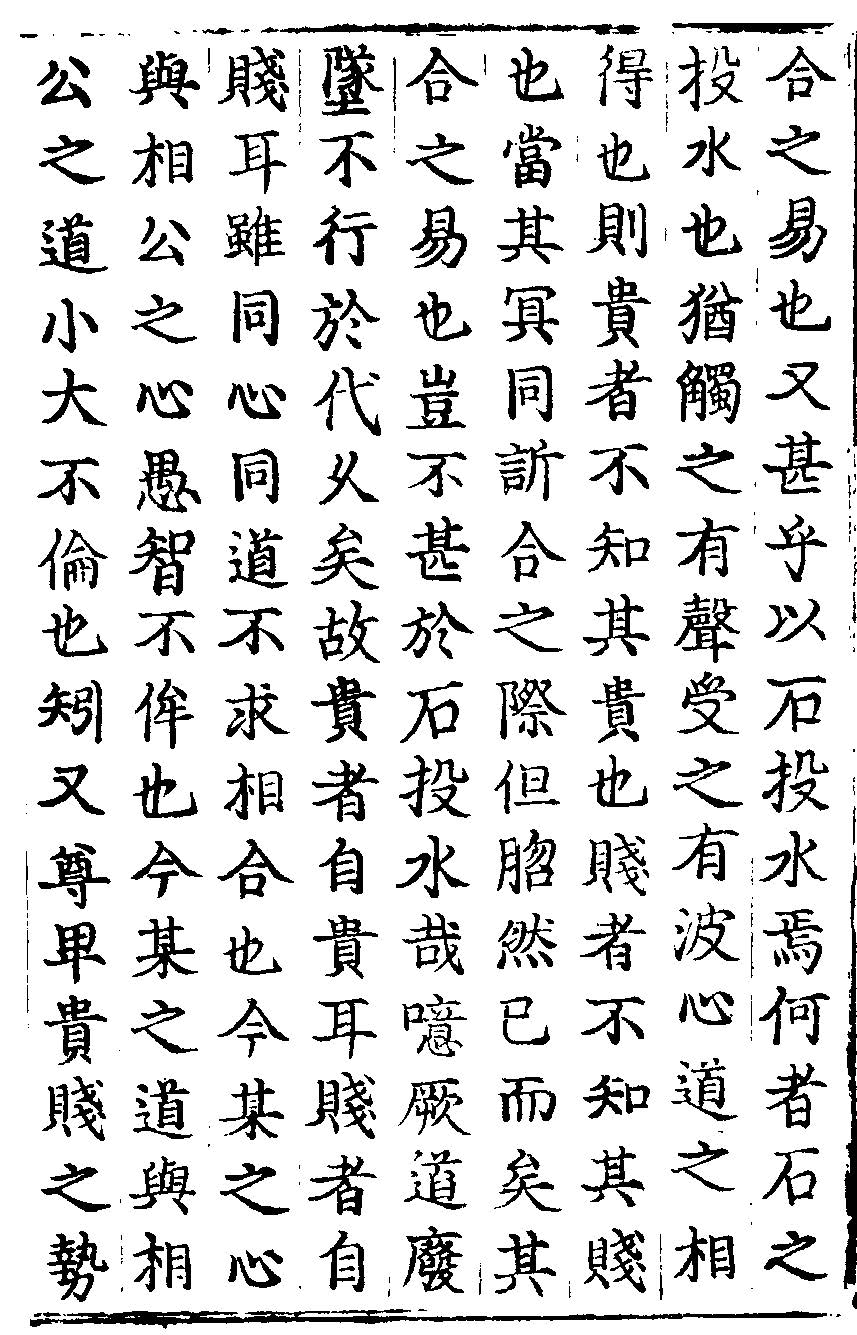 合之易也又甚乎以石投水焉何者石之
投水也猶觸之有聲受之有波心道之相
得也則貴者不知其貴也賤者不知其賤
也當其冥同訢合之際但脗然已而矣其
合之易也豈不甚於石投水哉噫厥道廢
墜不行於代久矣故貴者自貴耳賤者自
賤耳雖同心同道不求相合也今某之心
與相公之心愚智不侔也今某之道與相
公之道小大不倫也矧又尊卑貴賤之勢